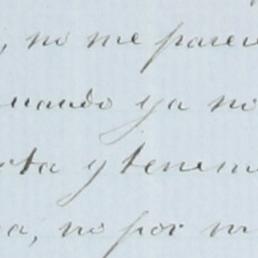 , no me parec
uando ya no
rta y tenem
a, no por m